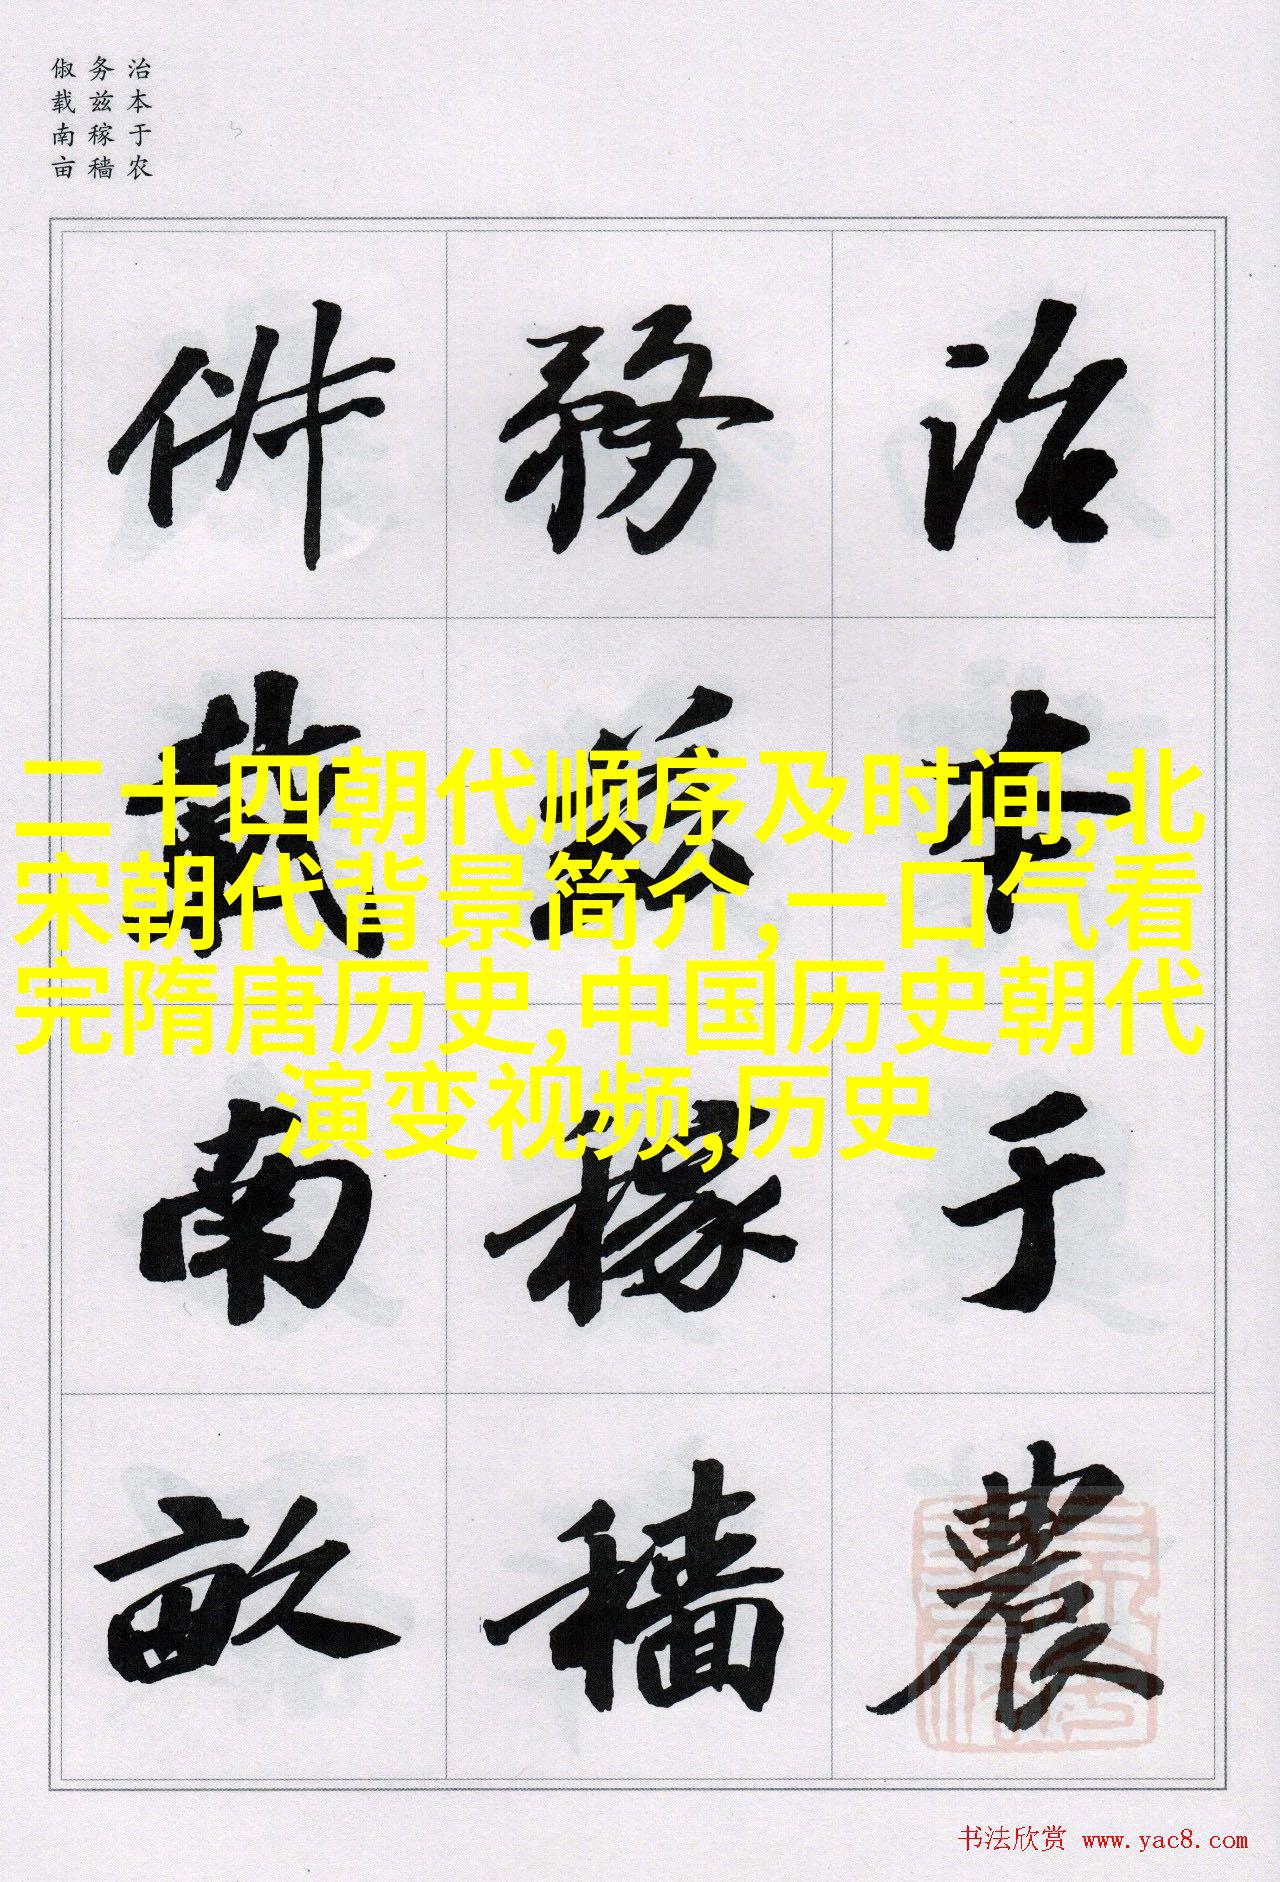 治本于农
务兹稼穑
俶载南亩
治本于農
務兹稼穡
俶載南畝
二十四朝代顺序及时间,北
宋朝代背景简介,一口气看
完隋唐历史,中国历史朝代
演变视频,历史
书法欣赏 www.yac8.com